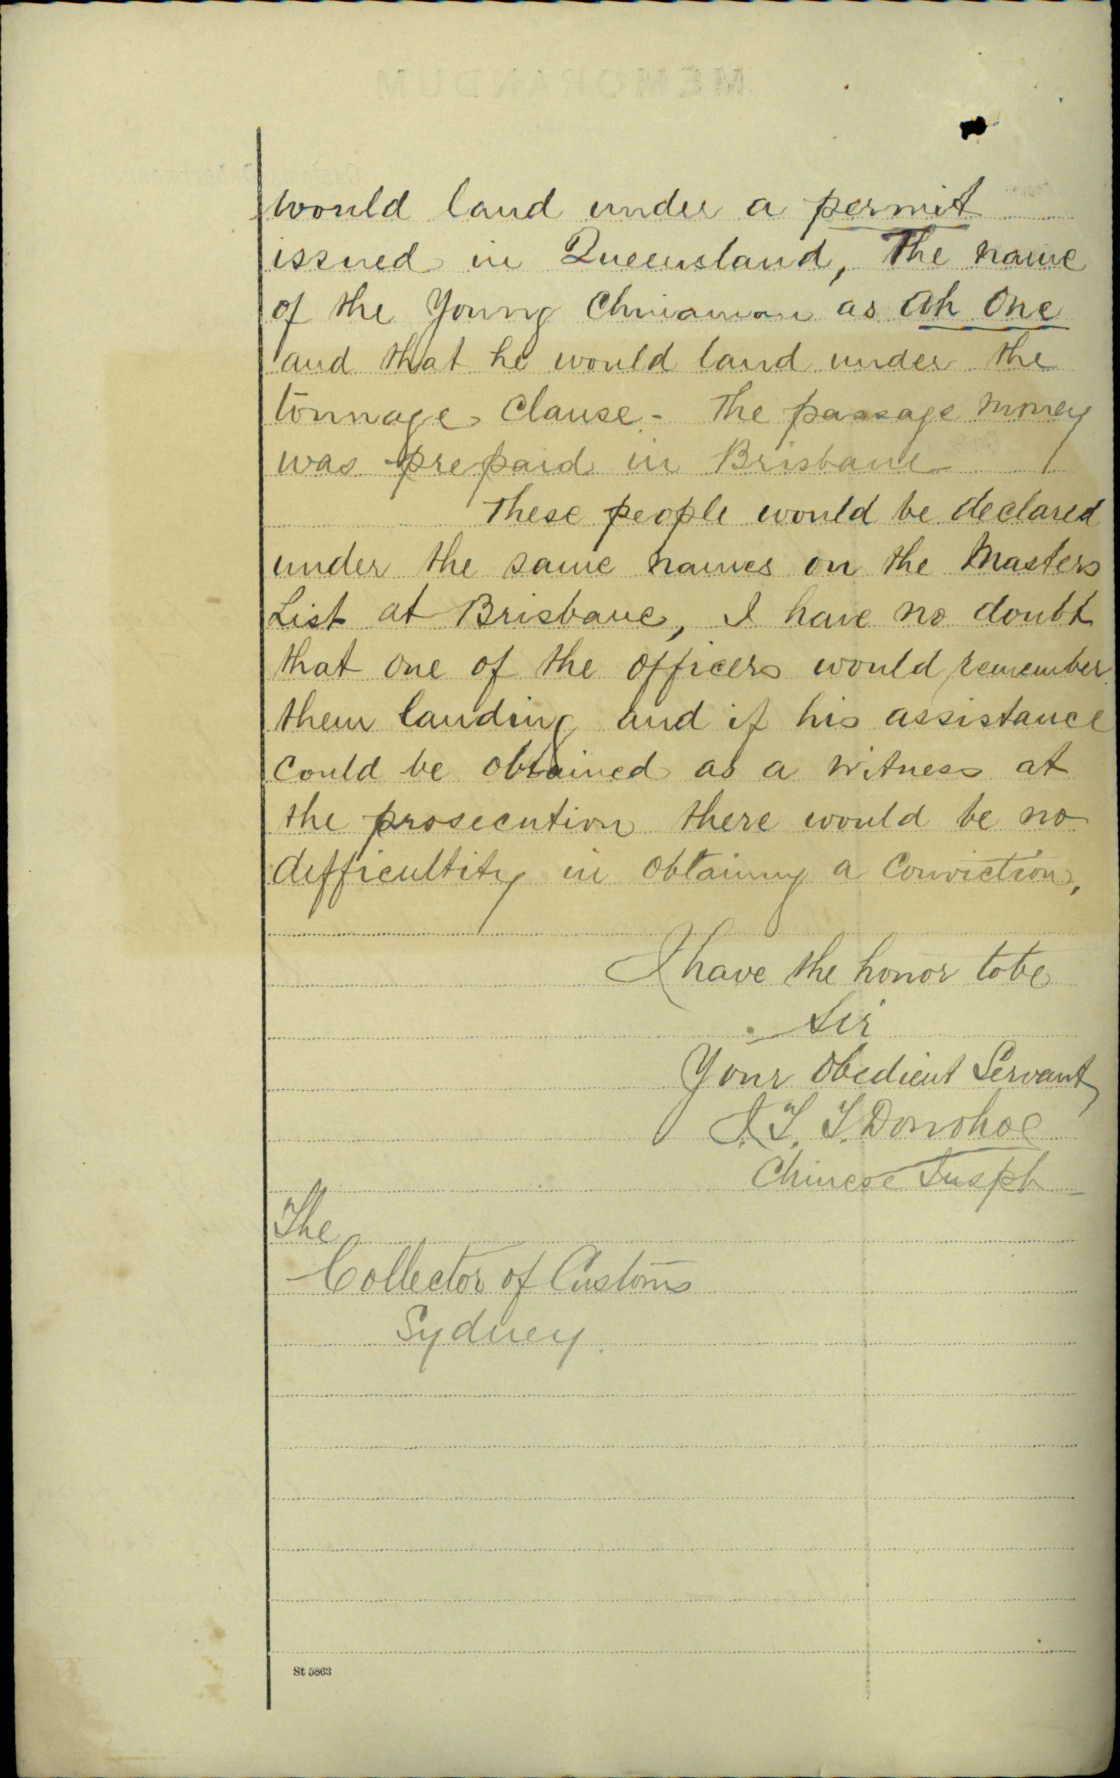 would land under a permit
issued in Queensland, The name
of the Young Chinaman as Ah One
and that he would land under the
tonnage Clause - The passage money
was prepaid in Brisbane
These people would be declared
under the same names on the Masters
List at Brisbane, I have no doubt
that one of the officers would remember
them landing and if his assistance
could be obtained as a witness at
the prosecution there would be no
difficultity in obtaining a Conviction,
I have the honor to be
Sir
Your Obedient Servant
J. T. T. Donohoe
Chinese Inspt
The
Collector of Customs
Sydney.
St 5863